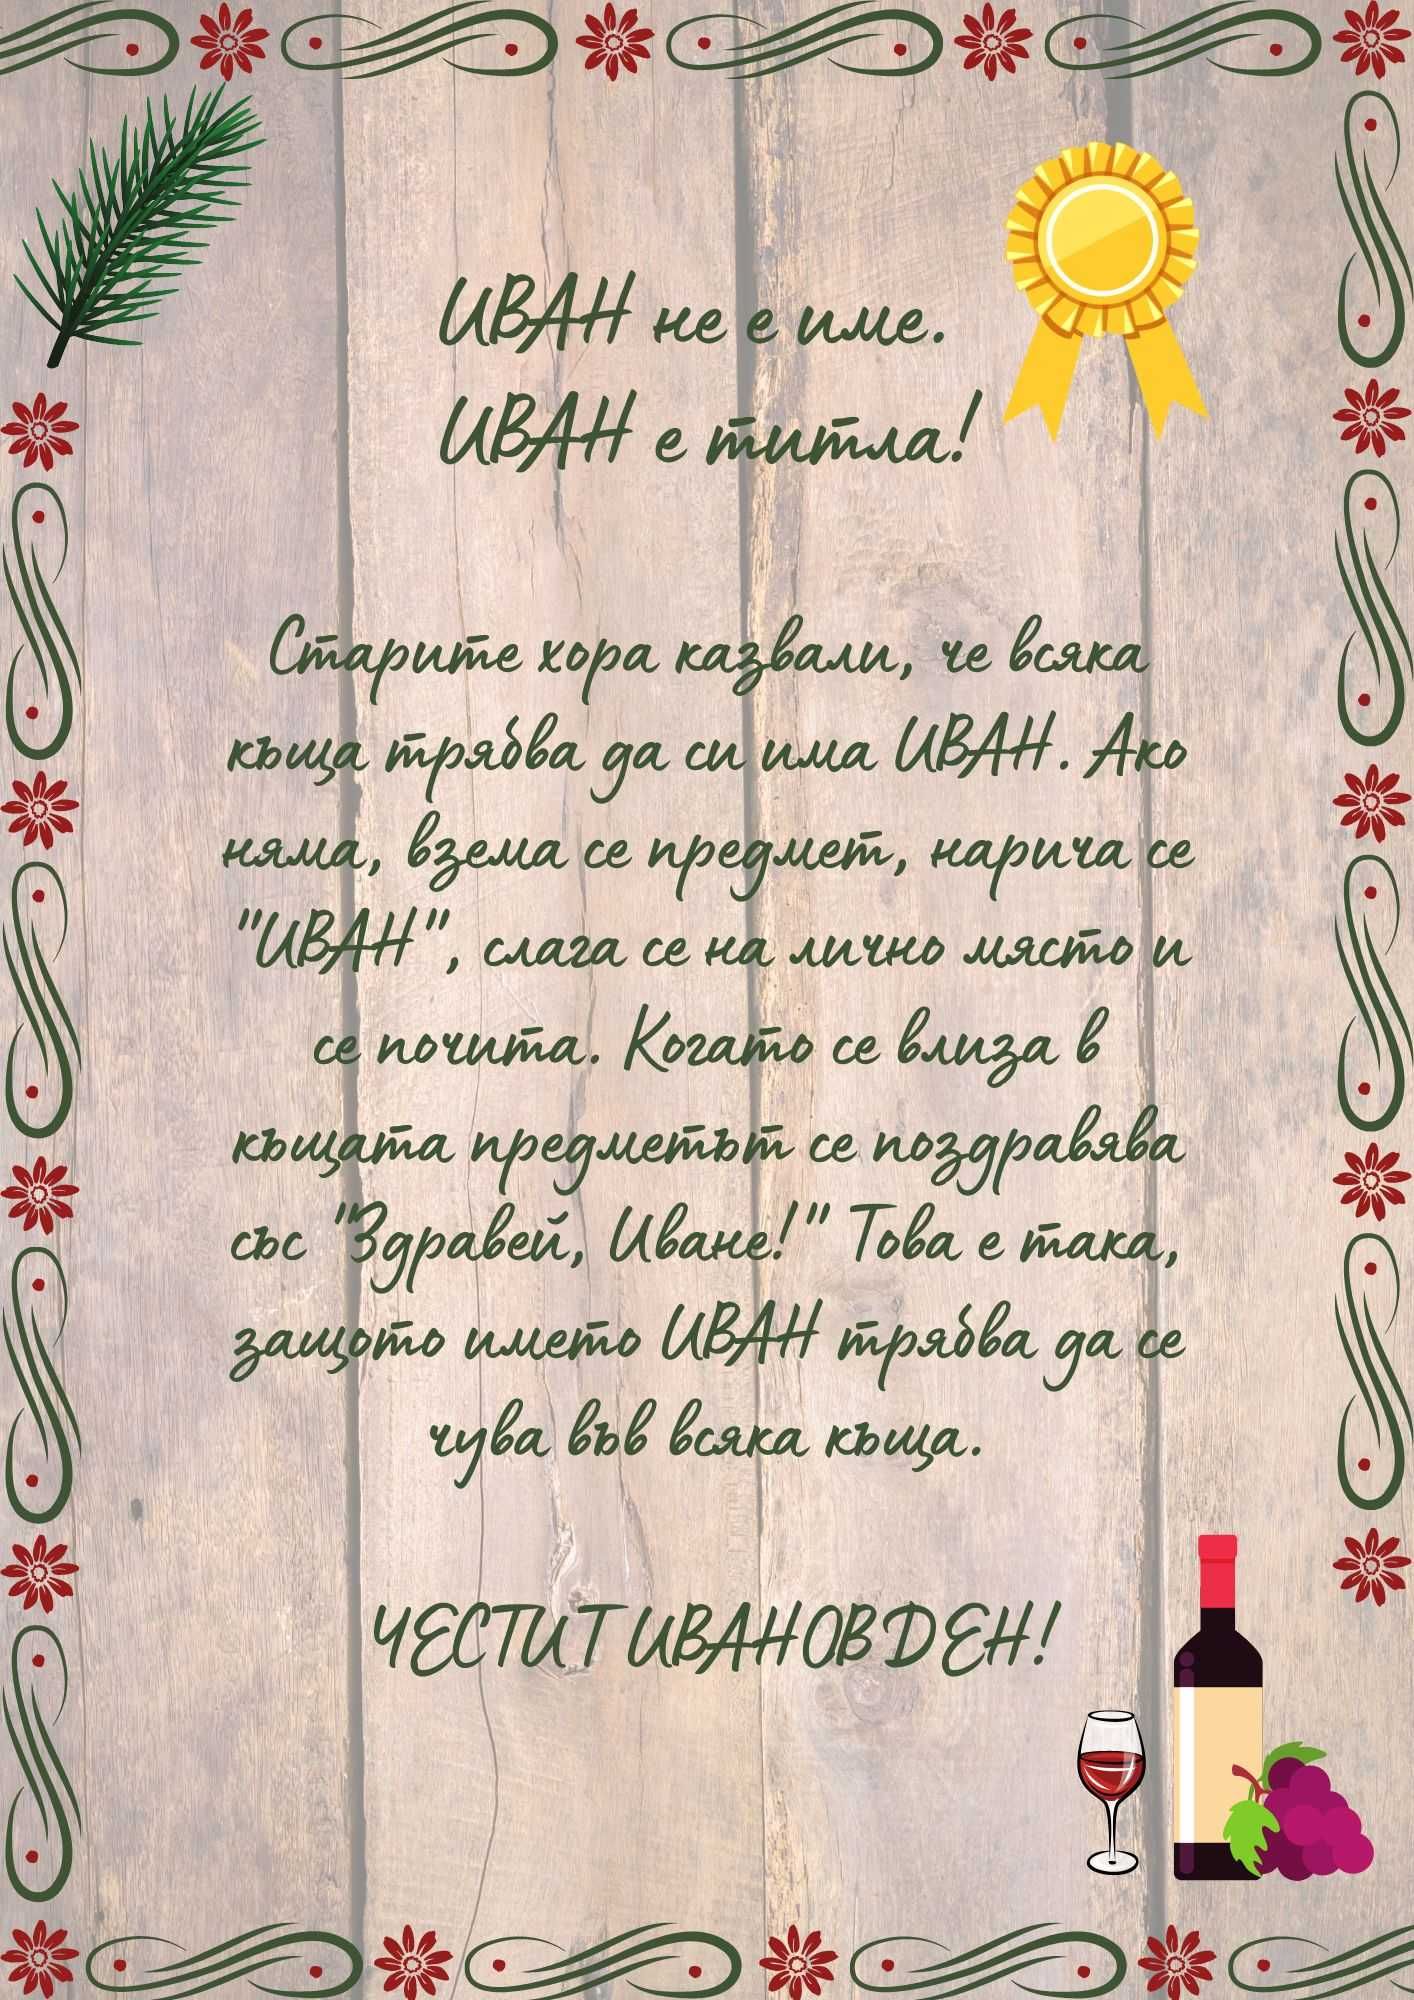 ИВАН не е име.
ИВАН е титла!
Старите хора казвали, че всяка
къща трябва да си има ИВАН. Ако
няма, взема се предмет, нарича се
"ИВАН", слага се на лично място и
се почита. Когато се влиза в
къщата предметът се поздравява
със "Здравей, Иване!" Това е така,
защото името ИВАН трябва да се
чува във всяка къща.
ЧЕСТИТ ИВАНОВДЕН!